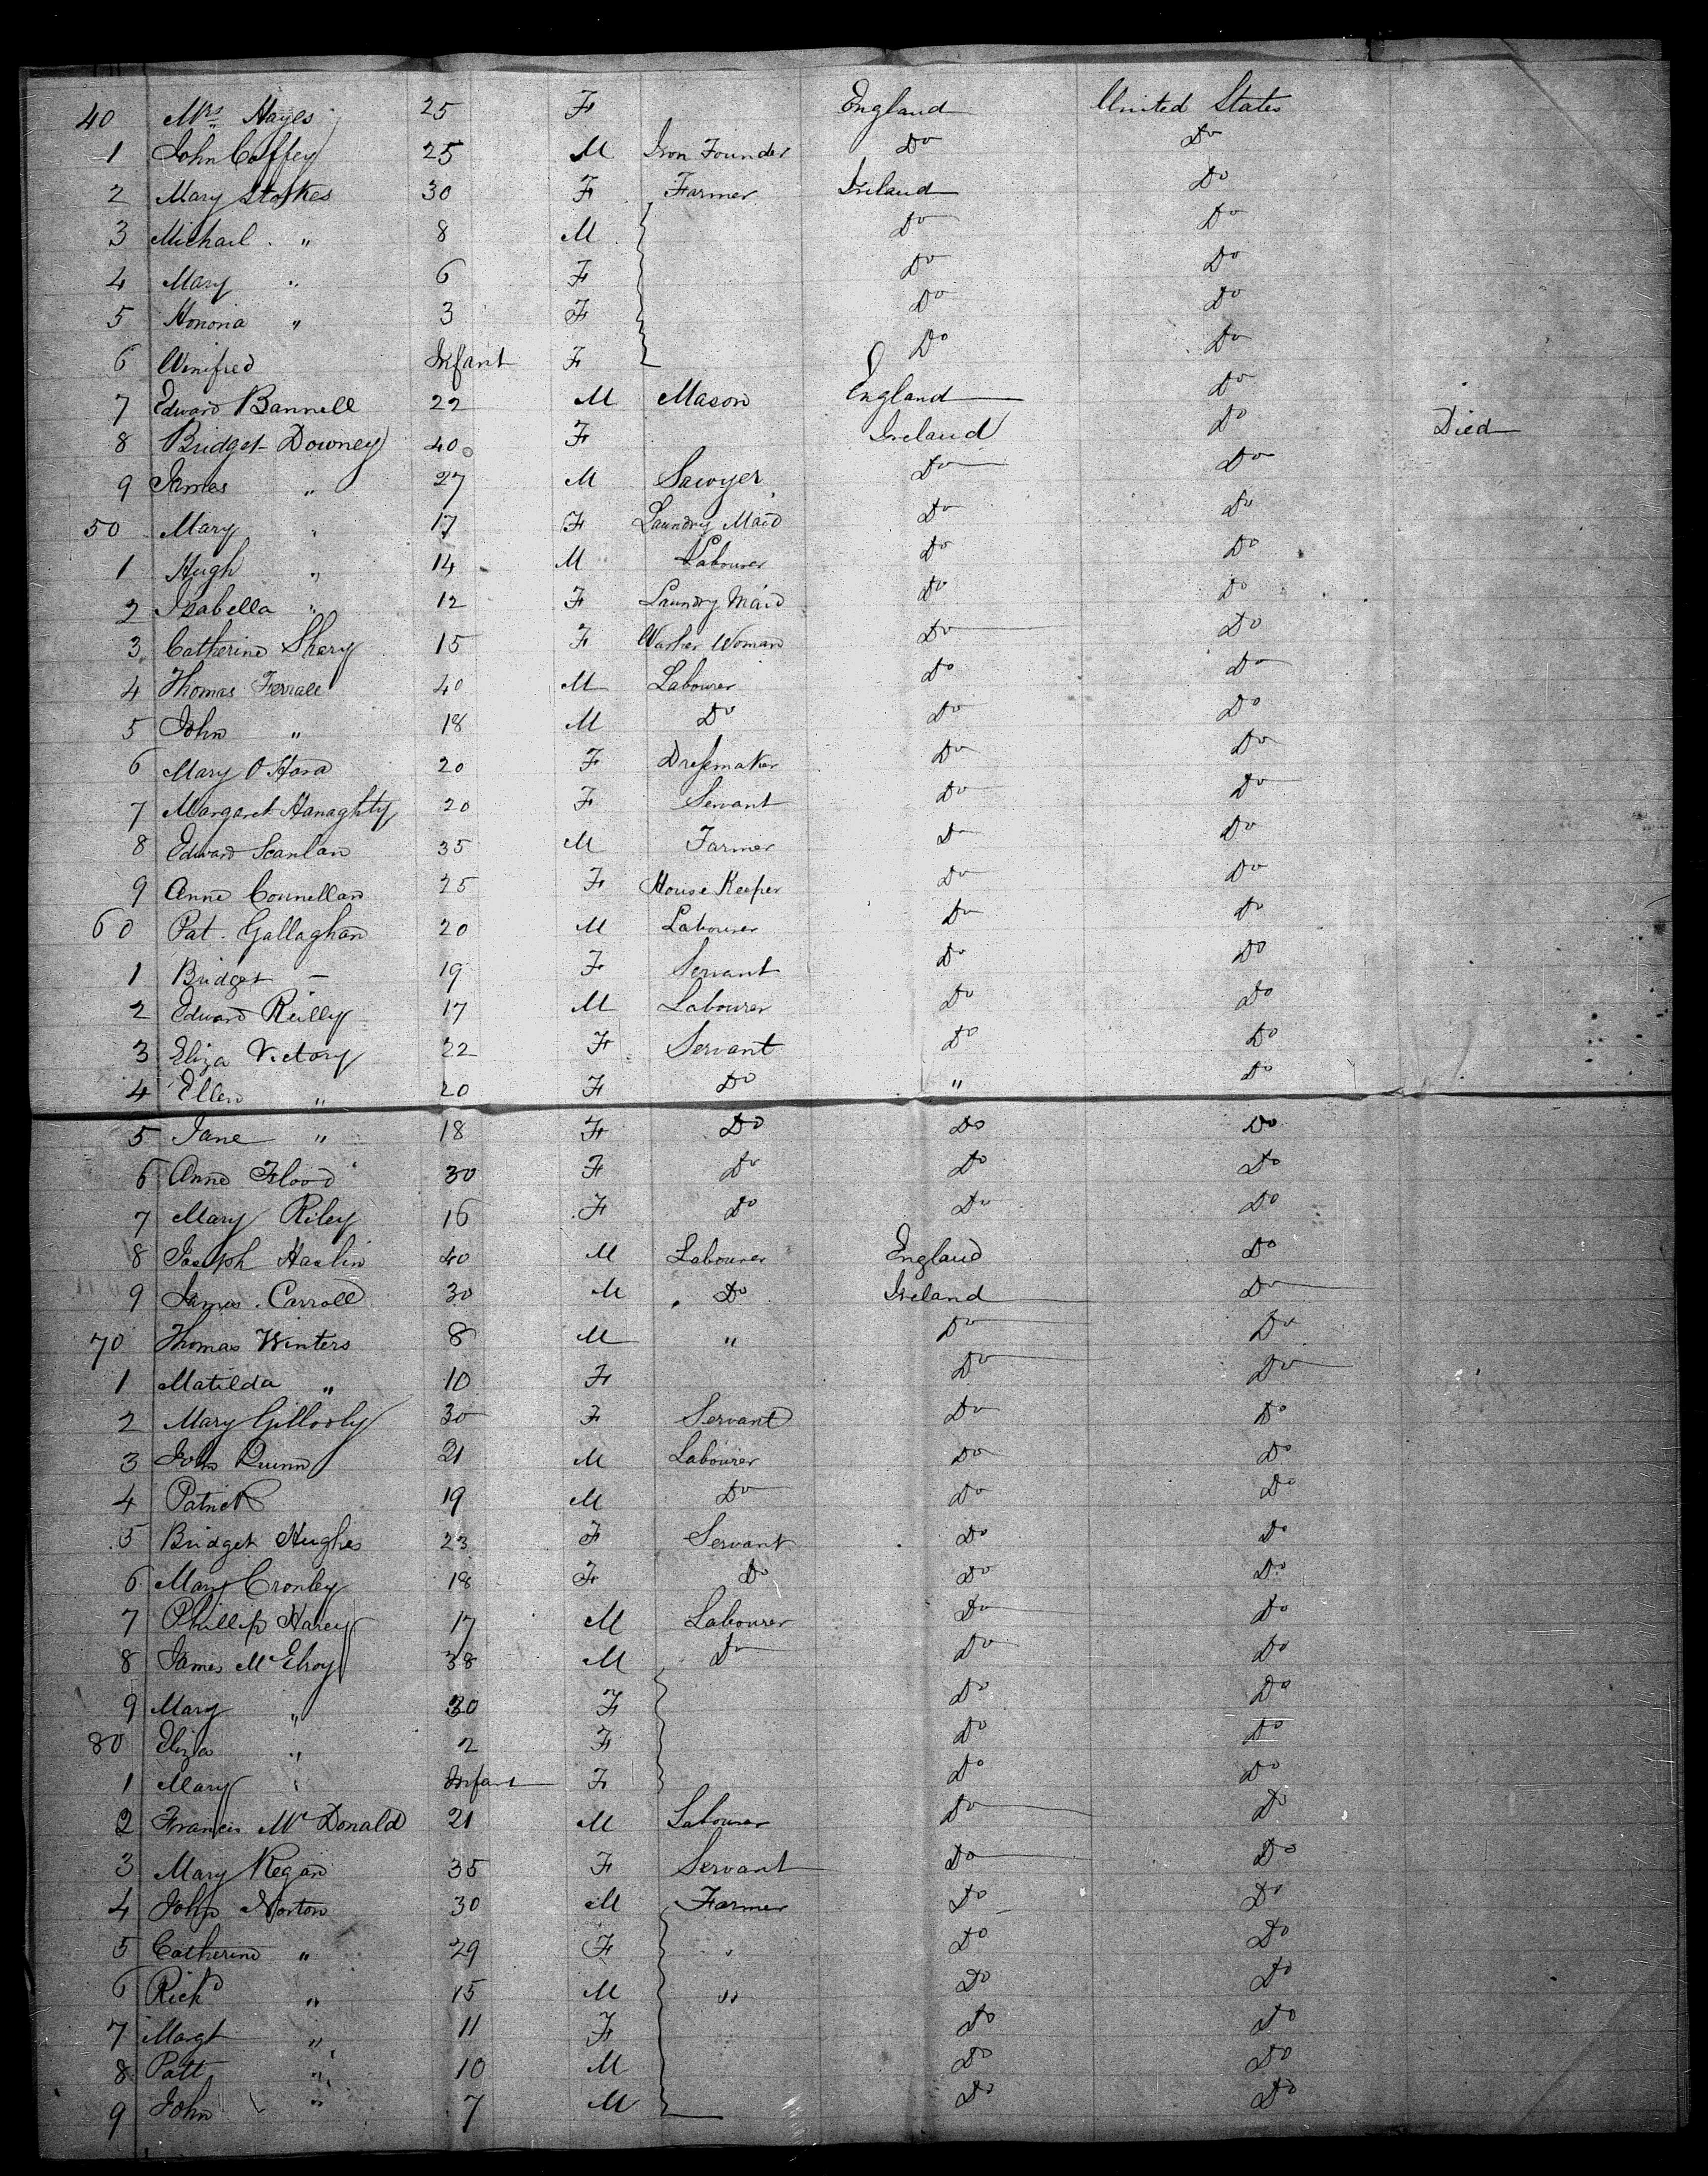 40 Mrs Hayes 25 F England United States
1 John Coffey 25 M Iron Founder Do Do
2 Mary Stokes 30 F Farmer Ireland Do
3 Michael " 8 M Do Do
4 Mary " 6 F Do Do
5 Honoria " 3 F Do Do
6 Winifred Infant F Do Do
7 Edward Bannell 22 M Mason England Do
8 Bridget Downey 40 F Ireland Do Died
9 James " 27 M Sawyer Do Do
50 Mary " 17 F Laundry Maid Do Do
1 Hugh " 14 M Labourer Do Do
2 Isabella " 12 F Laundry Maid Do Do
3 Catherine Shery 15 F Washer Woman Do Do
4 Thomas Ferrall 40 M Labourer Do Do
5 John " 18 M Do Do Do
6 Mary O Hara 20 F Dressmaker Do Do
7 Margaret Hanaghty 20 F Servant Do Do
8 Edward Scanlan 35 M Farmer Do Do
9 Anne Connellan 25 F House Keeper Do Do
60 Pat. Gallaghan 20 M Labourer Do Do
1 Bridget — 19 F Servant Do Do
2 Edward Reilly 17 M Labourer Do Do
3 Eliza Victory 22 F Servant Do Do
4 Ellen " 20 F Do " Do
5 Jane " 18 F Do Do Do
6 Anne Flood 30 F Do Do Do
7 Mary Riley 16 F Do Do Do
8 Joseph Haslin 40 M Labourer England Do
9 James Carroll 30 M Do Ireland Do
70 Thomas Winters 8 M " Do Do
1 Matilda " 10 F Do Do
2 Mary Gillooly 30 F Servant Do Do
3 John Quinn 21 M Labourer Do Do
4 Patrick 19 M Do Do Do
5 Bridget Hughes 23 F Servant Do Do
6 Mary Cronley 18 F Do Do Do
7 Phillip Harey 17 M Labourer Do Do
8 James McElroy 38 M Do Do Do
9 Mary " 30 F Do Do
80 Eliza " 2 F Do Do
1 Mary " Infant F Do Do
2 Francis McDonald 21 M Labourer Do Do
3 Mary Regan 35 F Servant Do Do
4 John Norton 30 M Farmer Do Do
5 Catherine " 29 F " Do Do
6 Richd " 15 M " Do Do
7 Magt " 11 F Do Do
8 Patt " 10 M Do Do
9 John " 7 M Do Do